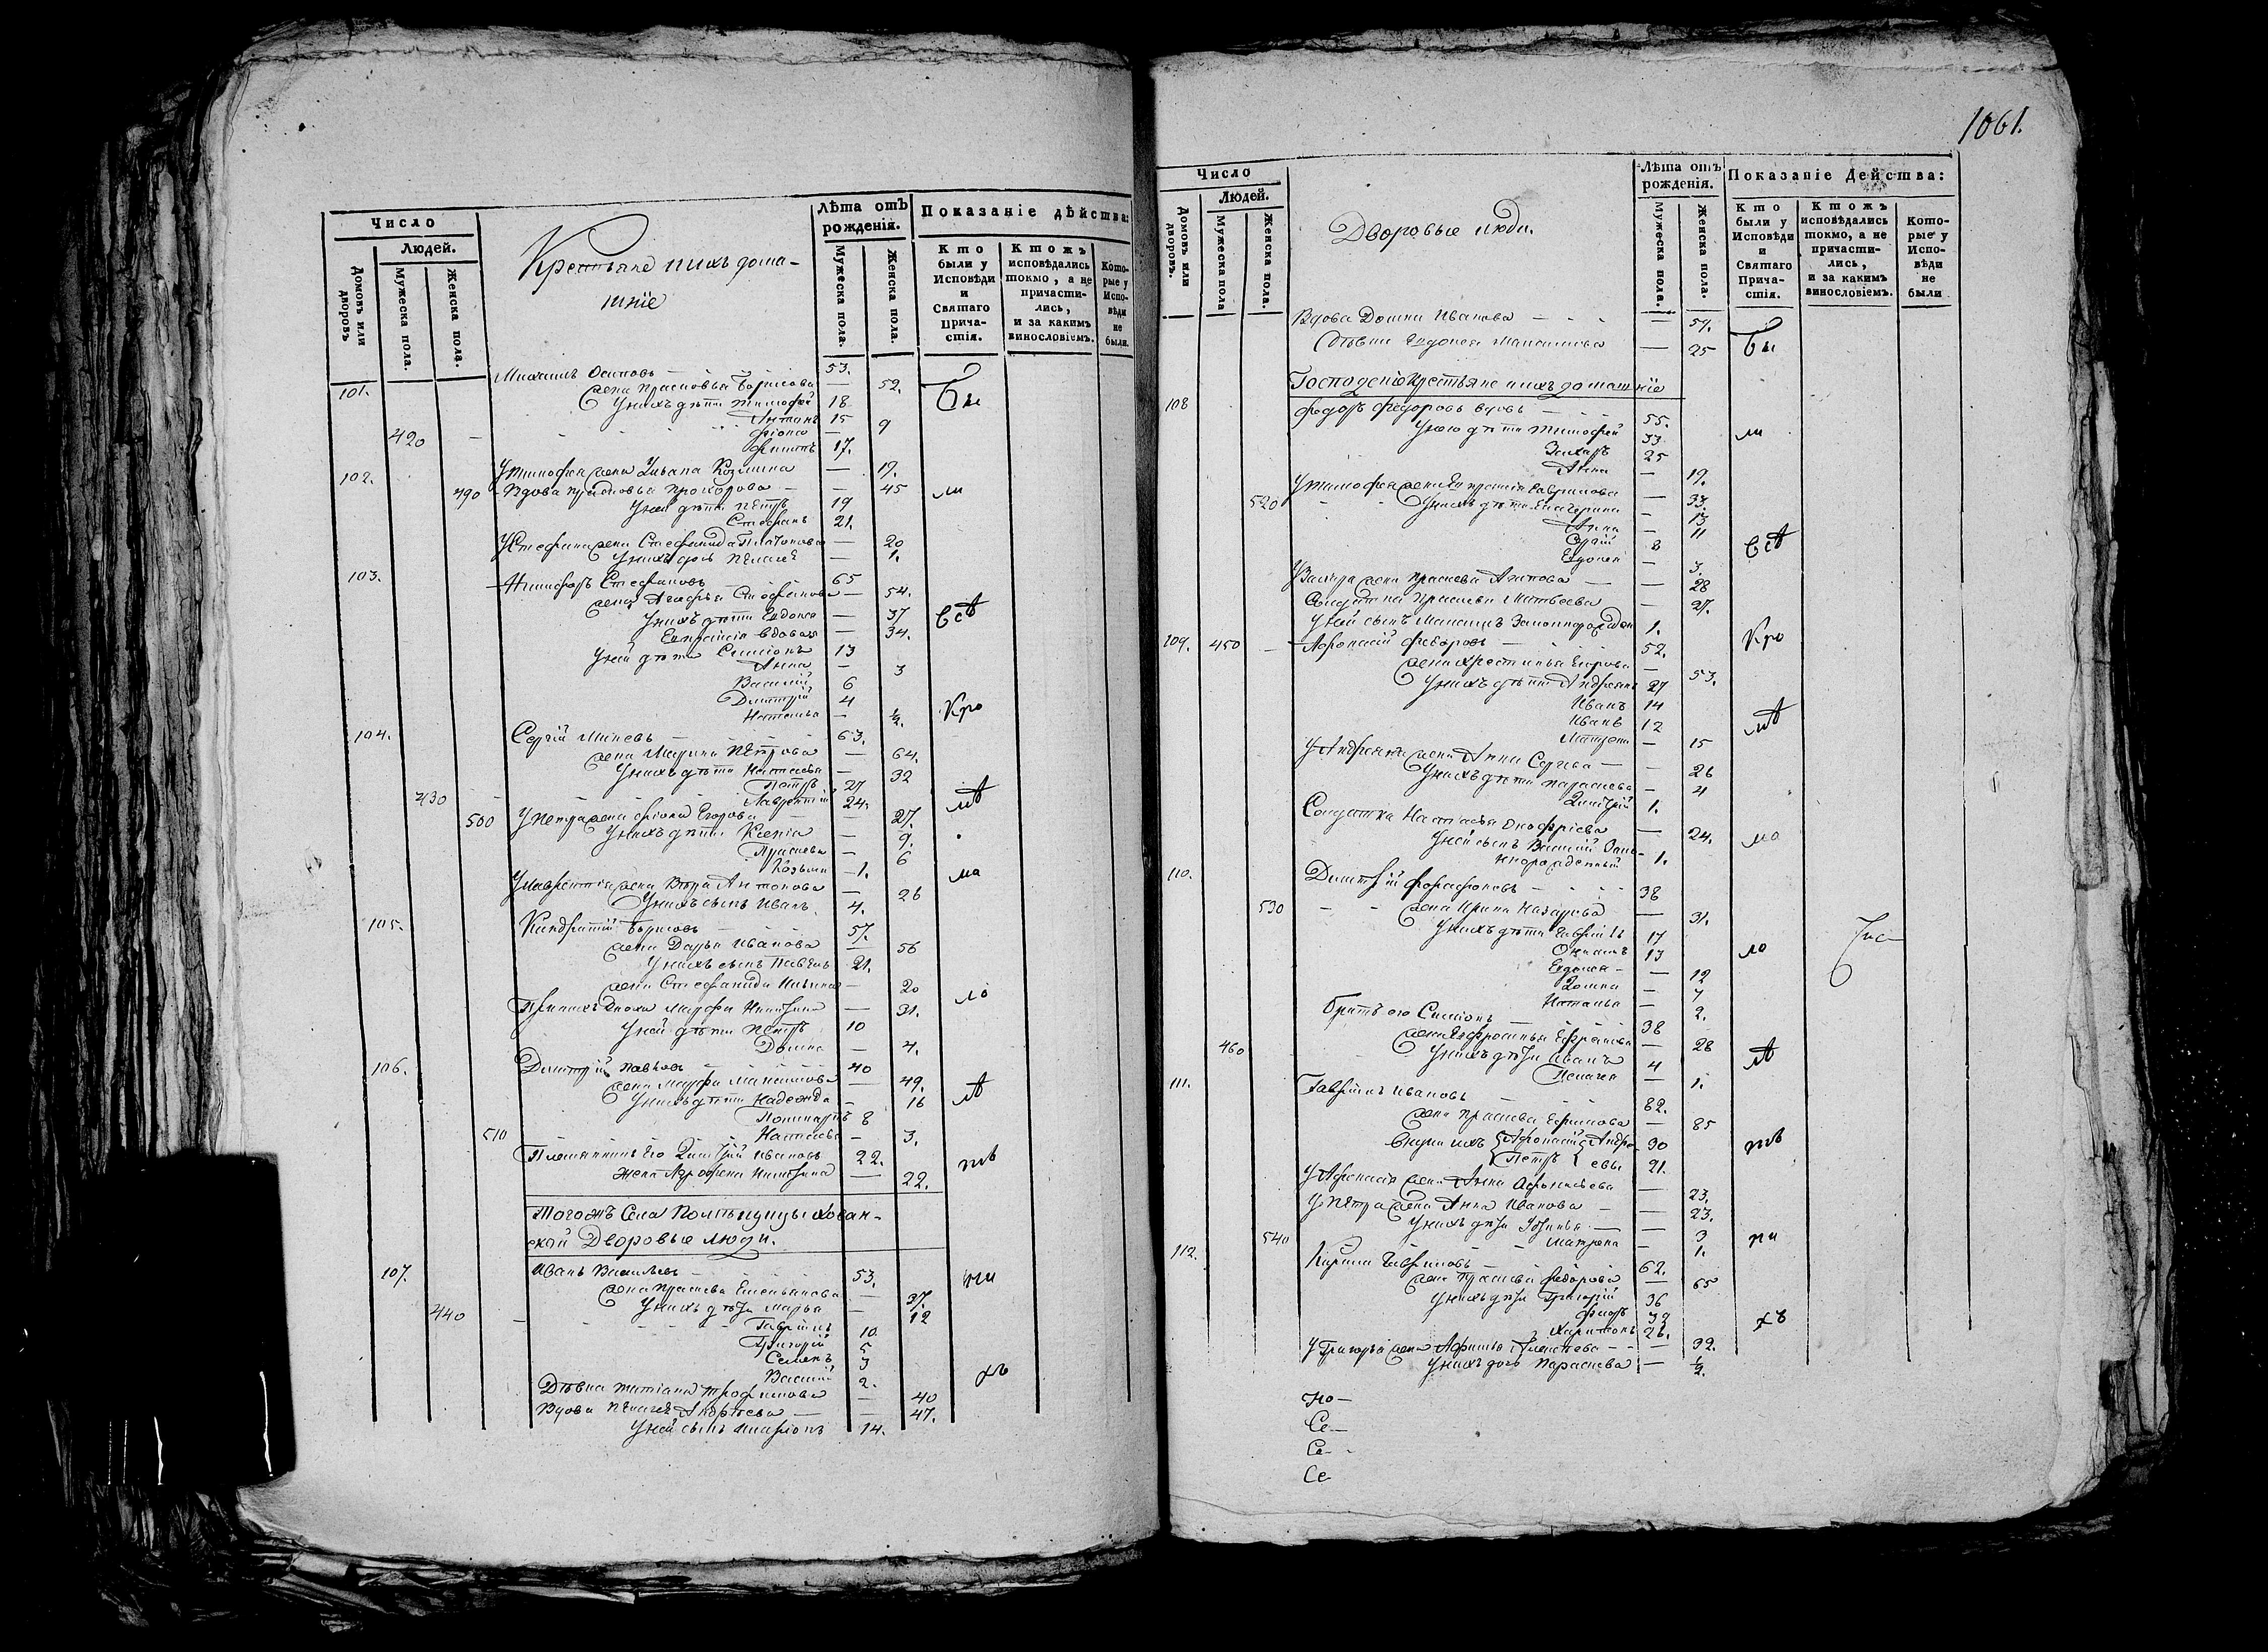 Число
Людей.
Домовъ или дворовъ
Мужеска пола.
Женска пола.
Крестьяне ихъ дома-
шніе
Лѣта отъ рожденія.
Мужеска пола.
Женска пола.
Показаніе дѣйства:
Кто были у Исповѣди и Святаго Прича-стія.
Ктожъ исповѣдались токмо, а не причасти-лись, и за какимъ винословіемъ.
Кото-рые у Испо-вѣди не были.
101. Михаилъ Осиповъ 53.
жена Прасковья Борисова — 52. Бы
У нихъ дѣти Тимофей 18.
Антонъ 15
420 — 9
17.
102. У Тимофея жена Ульяна Козмина — 19.
490 Вдова Прасковья Прохорова — 45 ли
У ней дѣти Петръ 19
Стефанъ 21.
У Стефана жена Стефанида Платонова — 20
У нихъ дочь Пелагея — 1.
103. Никифоръ Стефановъ 65
жена Агафья Стефанова — 54.
У нихъ дѣти Евдокея — 37 всѣ
вдовая — 34.
У ней дѣти Симіонъ 13
Анна — 3
Василій 6
Димитрій 4
Наталья — ½. Кро
104. Сергій Минеевъ 63.
жена Марина Петрова — 64.
У нихъ дѣти Наталья — 32
Петръ 27
430 Лаврентій 24. мѣ
500 У Петра жена Егорова — 27.
У нихъ дѣти Ксенія — 9.
Праскева — 6
Козьма 1. ма
У Лаврентія жена Вѣра Антонова — 26
У нихъ сынъ Иванъ 4.
105. Кондратій Борисовъ 57.
жена Дарья Иванова — 56
У нихъ сынъ Павелъ 21.
жена Стефанида — 20 ло
Марфа Никитина — 31.
У ней дѣти Петръ 10
Домна — 4.
106. Димитрій Павловъ 40
жена Марфа Максимова — 49. лѣ
У нихъ дѣти Надежда — 16
8
510 Наталья — 3.
Племянникъ его Димитрій Ивановъ 22. тѣ
жена Агрофена Никитина — 22.
Тогожъ Села Хован-
ской Дворовые люди.
107. Иванъ Васильевъ 53.
жена Праскева Емельянова — 37.
У нихъ дѣти Марья — 12
440 Гаврилъ 10.
Григорій 5
Семенъ 3
Василій 2. хъ
Дѣвка Татіана Трофимова — 40
Вдова Пелагея Андреева — 47.
У ней сынъ 14.
1061.
Число
Людей.
Домовъ или дворовъ.
Мужеска пола
Женска пола.
Дворовые люди.
Лѣта отъ рожденія.
Мужеска пола.
Женска пола.
Показаніе Дейсшва:
Кто были у Исповѣди и Святаго Прича-стія.
Ктожъ исповѣдались токмо, а не причасти-лись, и за какимъ винословіемъ.
Кото-рые у Испо-вѣди не были
Вдова Домна Иванова — 57.
Дѣвка Евдокея Максимова — 25 Бы
Господскіе Крестьяне ихъ домашніе
108 Федоръ Федоровъ вдовъ 55.
У него дѣти Тимофей 33 ли
Захаръ 25
Анна — 19.
У Тимофея жена Гаврилова — 33.
520 У нихъ дѣти Екатерина — 13
Анна — 11
Сергій 8 всѣ
Евдокея — 3.
У Захара жена Праскева Агапова — 28
Солдатка Праскева Матвеева — 27.
У ней сынъ Максимъ Законнорожден 1.
109. 450 Афонасій Федоровъ 52. Кро
жена Христинья Егорова — 53.
У нихъ дѣти Андреянъ 27
Иванъ 14
Иванъ 12 мѣ
Матрена — 15
У Андреяна жена Анна Сергева — 26
У нихъ дѣти Параскева — 4
Димитрій 1.
Солдатка Наталья Онофріева — 24. ма
У ней сынъ Василій Зако-
ннорожденный 1.
110. Димитрій 38
530 жена Ирина Назарова — 31.
У нихъ дѣти Гаврилъ 17
13 ло
Евдокея — 12
Домна — 7
Наталья — 2.
Братъ его Симіонъ 38
жена Евфросинья Ефремова — 28
460 У нихъ дѣти Иванъ 4 лѣ
Пелагея — 1.
111. Гаврилъ Ивановъ 82.
жена Праскева Ефимова — 85
Внуки ихъ Афонасій Андре- 30 тѣ
Петръ евы 21.
У Афонасія жена Анна Афонасьева — 23.
У Петра жена Анна Иванова — 23.
У нихъ дѣти Устинья — 3
540 Матрена — 1.
112. Кирила Гавриловъ 62.
жена Праскева Федорова — 65
У нихъ дѣти Григорій 36
Федоръ 32 хъ
Харитонъ 26.
У Григорья жена Афимья Алексеева — 32.
У нихъ дочь Параскева — ½.
Но —
Се —
Се —
Се